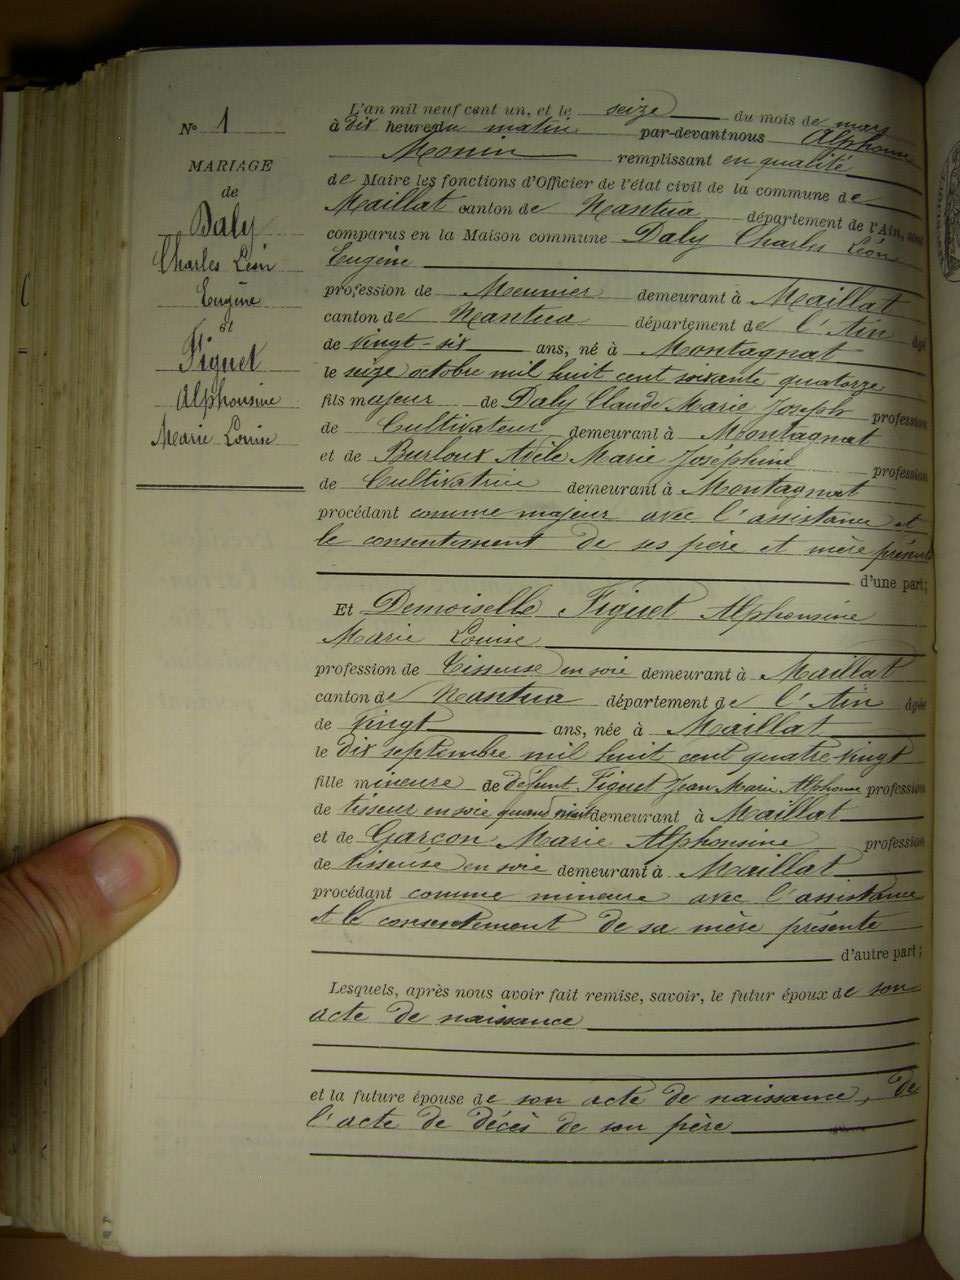 N° 1
MARIAGE
de
Daly
Charles Léon
Eugène
et
Figuet
Alphonsine
Marie Louise
L'an mil neuf cent un, et le seize du mois de mars
à dix heures du matin par-devant nous Alphonse
Monin remplissant en qualité
de Maire les fonctions d'Officier de l'état civil de la commune de
Maillat canton de Nantua département de l'Ain, sont
comparus en la Maison commune Daly Charles Léon
Eugène
profession de Meunier demeurant à Maillat
canton de Nantua département de l'Ain âgé
de vingt-six ans, né à Montagnat
le seize octobre mil huit cent soixante quatorze
fils majeur de Daly Claude Marie Joseph profession
de Cultivateur demeurant à Montagnat
et de Burloux Adèle Marie Josephine profession
de Cultivatrice demeurant à Montagnat
procédant comme majeur avec l'assistance et
le consentement de ses père et mère présents
d'une part;
Et Demoiselle Figuet Alphonsine
Marie Louise
profession de Tisseuse en soie demeurant à Maillat
canton de Nantua département de l'Ain âgée
de vingt ans, née à Maillat
le dix septembre mil huit cent quatre-vingt
fille mineure de défunt Figuet Jean Marie Alphonse profession
de tisseur en soie quand vivait demeurant à Maillat
et de Garçon Marie Alphonsine profession
de tisseuse en soie demeurant à Maillat
procédant comme mineure avec l'assistance
et le consentement de sa mère présente
d'autre part;
Lesquels, après nous avoir fait remise, savoir, le futur époux de son
acte de naissance
et la future épouse de son acte de naissance, de
l'acte de décès de son père